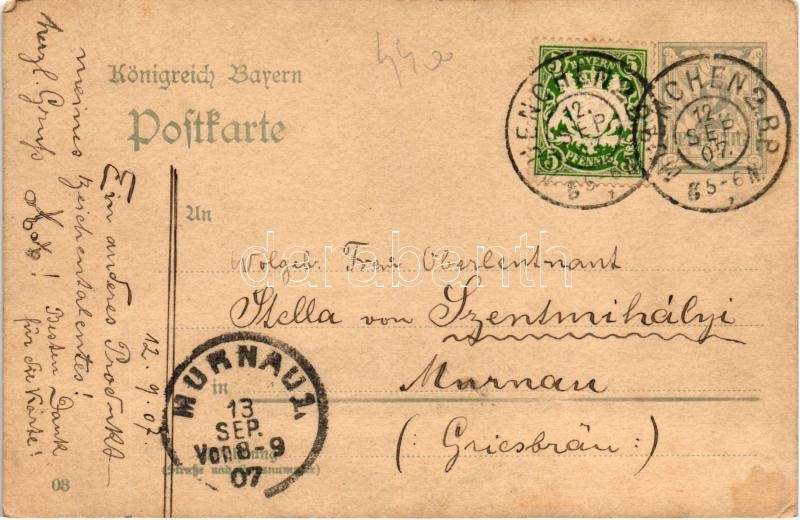 Königreich Bayern
Postkarte
An
Wolgeb. Frau Oberleutnant
Stella von Szentmihályi
Murnau
in
(: Griesbräu :)
(Straße und Hausnummer)
03
BAYERN
5 5
PFENNIG
MUENCHEN 2 B.P.
12.
SEP.
5-6 N.
MUENCHEN 2 B.P.
12.
SEP.
07.
5-6 N.
MURNAU 1.
13
SEP.
Vor. 8-9
07
12.9.07
Ein anderes Produkt
meines Zeichentalentes!
herzl. Gruß
Besten Dank
für die Karte!
darabanth.com